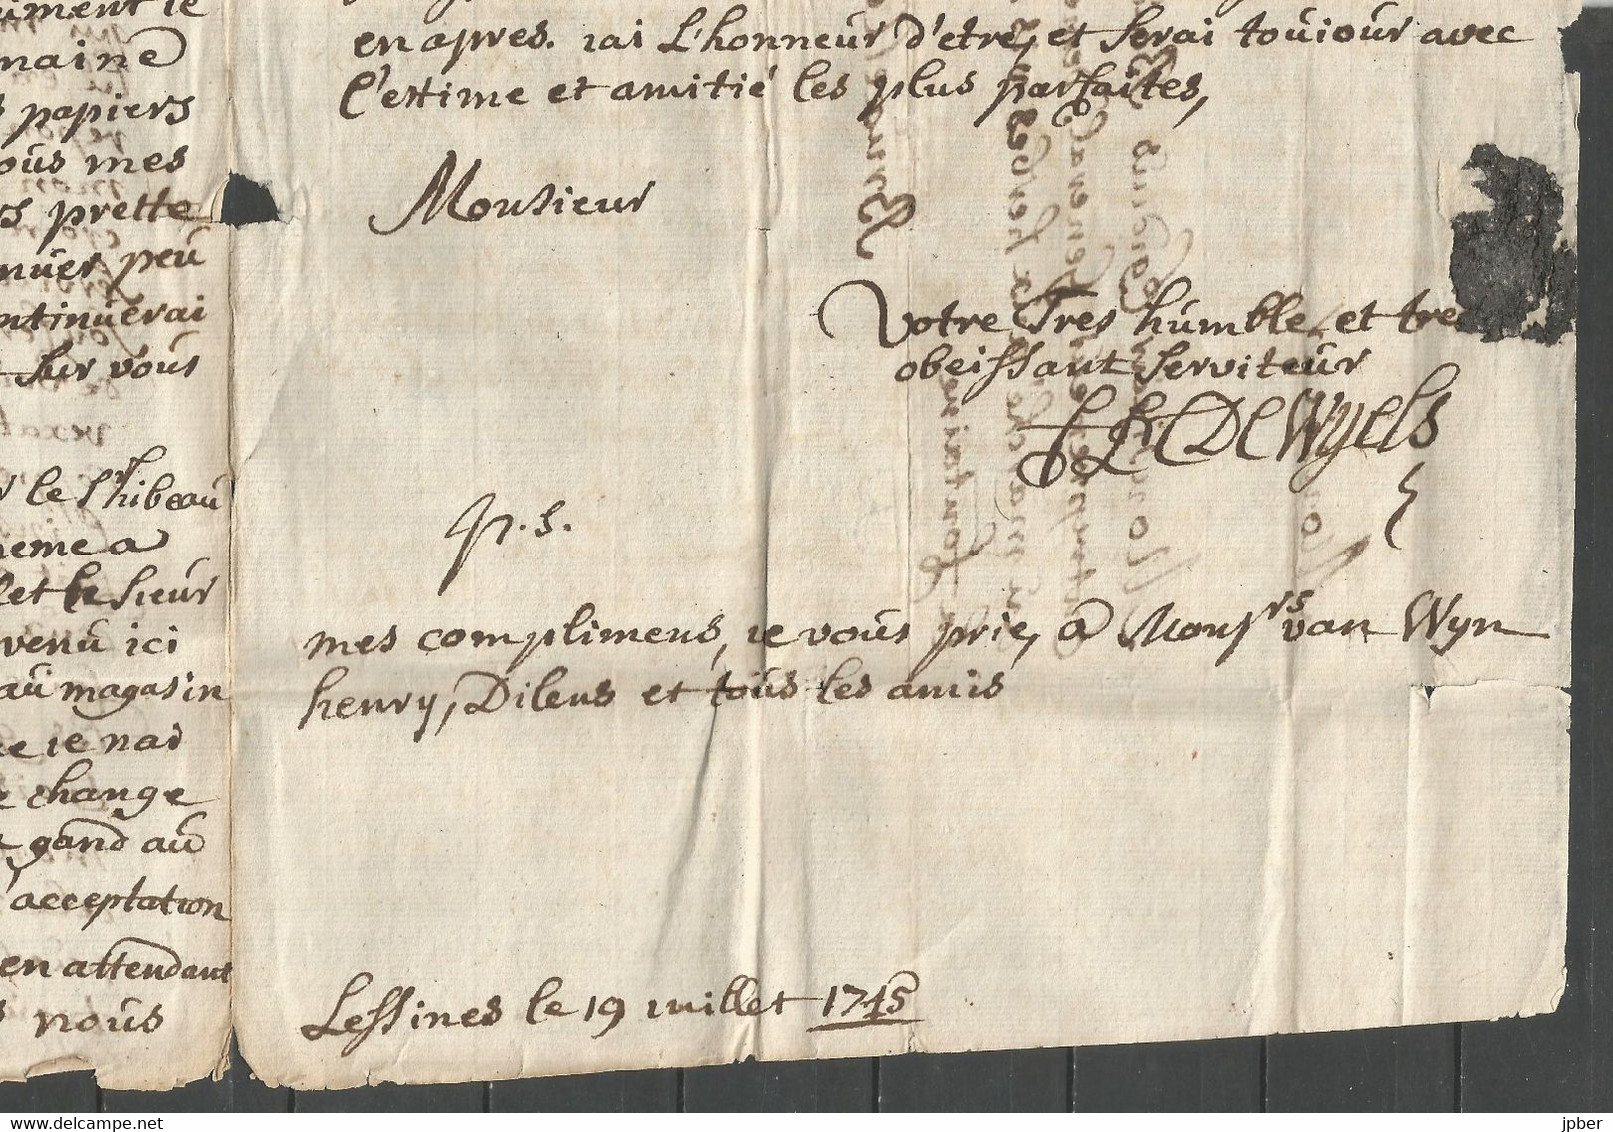 ument ie
maine
papiers
ous mes
s prette
nuer peu
ntinuerai
sur vous
le Sr hibeau
meme a
let le Sieur
venu ici
au magasin
ie nai
change
gand au
acceptation
en attendant
nous
en apres. iai L'honneur d'etre, et Serai touiour avec
l'estime et amitié les plus parfaites,
Monsieur
Votre Tres humble et tre
obeissant Serviteur
De Wyels
p.s.
mes complimens, ie vous prie, a Monsrs van Wyn
henry, Dilens et tous les amis
Lessines le 19 iuillet 1745
delcampe.net
jpber